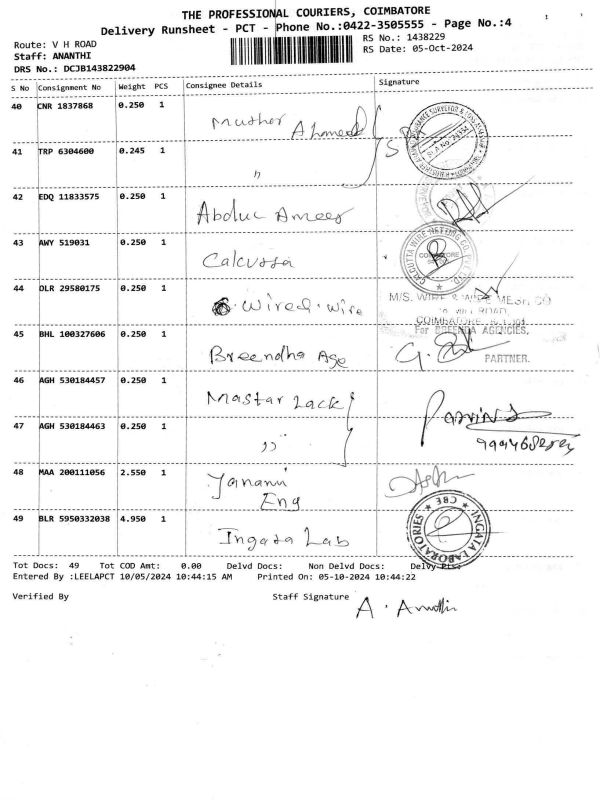 THE PROFESSIONAL COURIERS, COIMBATORE
Delivery Runsheet - PCT - Phone No.:0422-3505555 - Page No.:4
Route: V H ROAD
RS No.: 1438229
Staff: ANANTHI
RS Date: 05-Oct-2024
DRS No.: DCJB143822904
S No Consignment No Weight PCS Consignee Details Signature
40 CNR 1837868 0.250 1 Muthar Ahmed
41 TRP 6304600 0.245 1 "
42 EDQ 11833575 0.250 1 Abdul Ameer
43 AWY 519031 0.250 1 Calcutta
CALCUTTA WIRE NETTING CO
44 DLR 29580175 0.250 1 Wired. Wire
M/S. WIRE & WIRE MESH CO
COIMBATORE
45 BHL 100327606 0.250 1 Breendha Age
For BREENDA AGENCIES,
PARTNER.
46 AGH 530184457 0.250 1 Mastar Lack
47 AGH 530184463 0.250 1 "
48 MAA 200111056 2.550 1 Janani
Eng
49 BLR 5950332038 4.950 1 Ingata Lab
INGATA LABORATORIES CBE
Tot Docs: 49 Tot COD Amt: 0.00 Delvd Docs: Non Delvd Docs:
Entered By :LEELAPCT 10/05/2024 10:44:15 AM Printed On: 05-10-2024 10:44:22
Verified By Staff Signature